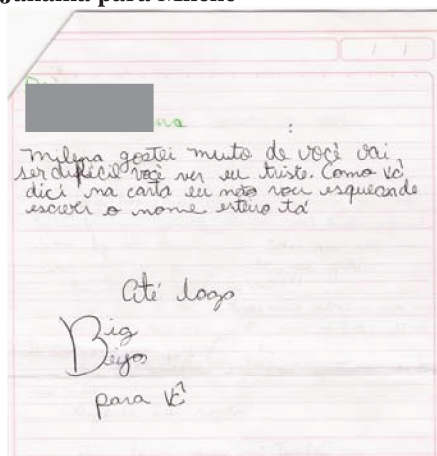 Milena gostei muito de você vai
ser dificil você ver eu triste. Como vc̑
dici na carta eu não vou esqueande
escever o nome enteiro tá
Até logo
Big
Beijos
para vc̑